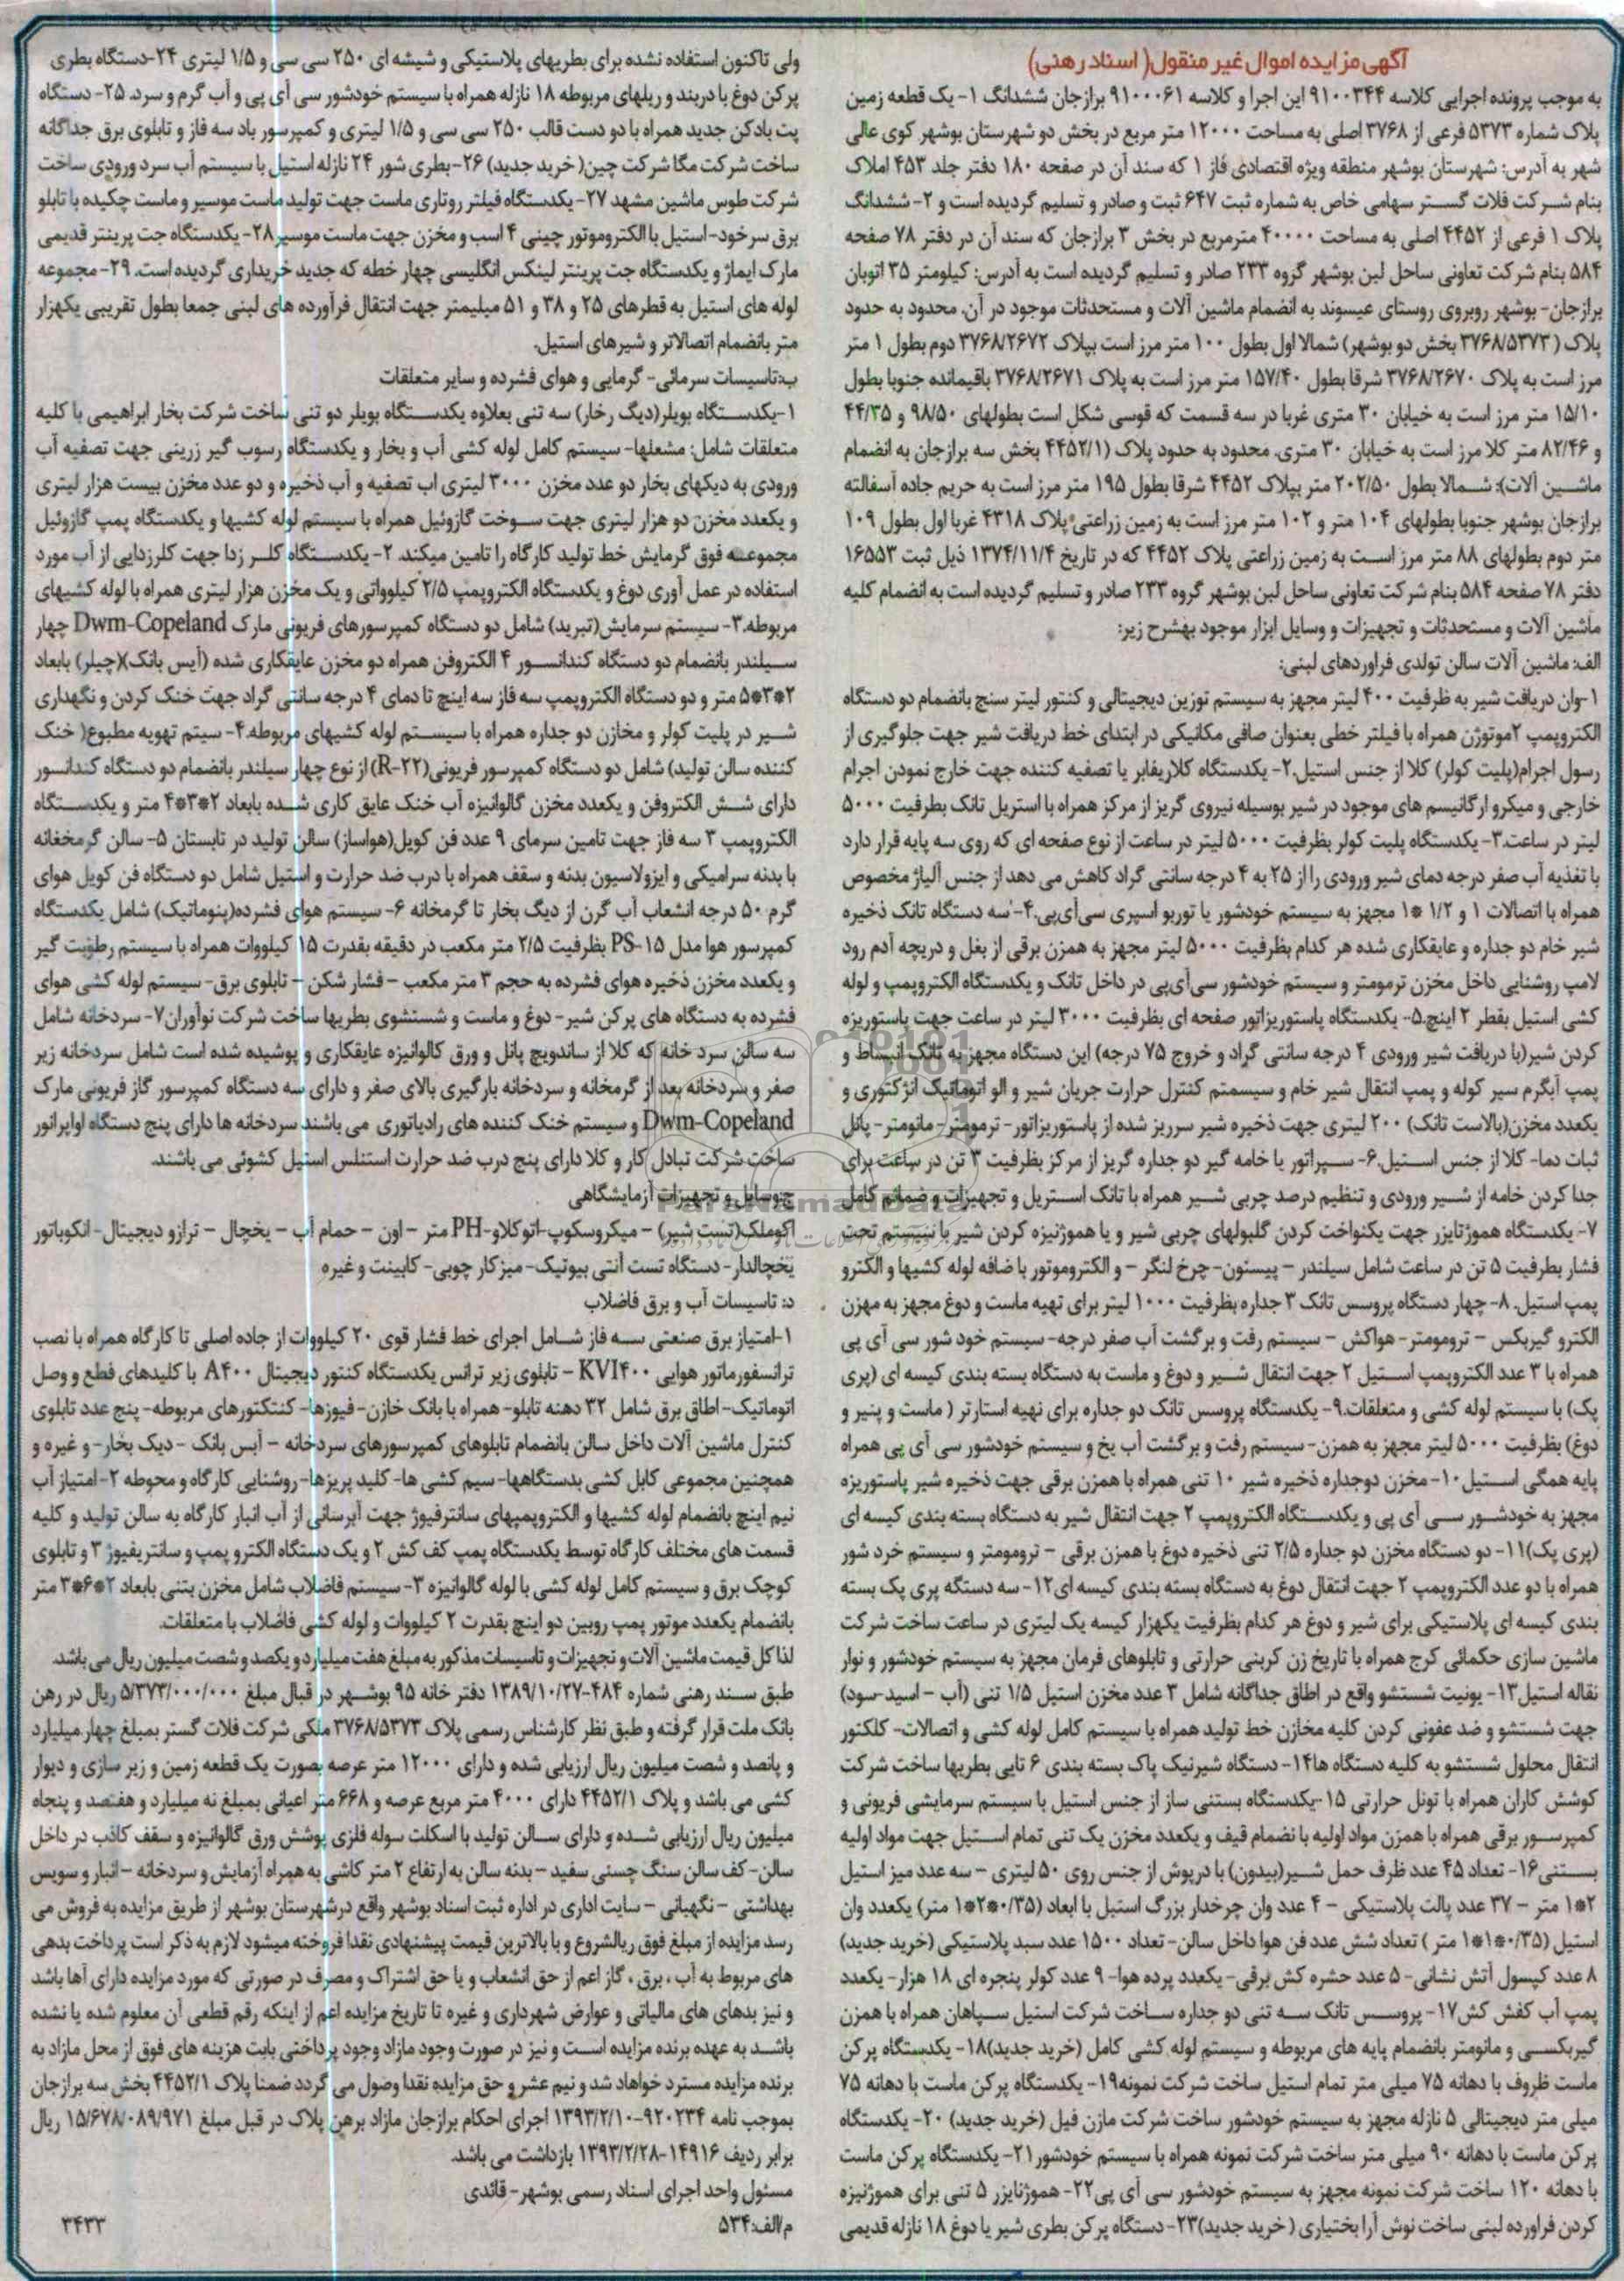 آگهی مزایده اموال غیر منقول (اسناد رهنی)
به موجب پرونده اجرایی کلاسه ۹۱۰۰۳۴۴ این اجرا و کلاسه ۹۱۰۰۰۶۱ برازجان ششدانگ ۱- یک قطعه زمین
پلاک شماره ۵۳۷۳ فرعی از ۳۷۶۸ اصلی به مساحت ۱۲۰۰۰ متر مربع در بخش دو شهرستان بوشهر کوی عالی
شهر به آدرس: شهرستان بوشهر منطقه ویژه اقتصادی فاز ۱ که سند آن در صفحه ۱۸۰ دفتر جلد ۴۵۳ املاک
بنام شرکت فلات گستر سهامی خاص به شماره ثبت ۶۴۷ ثبت و صادر و تسلیم گردیده است و ۲- ششدانگ
پلاک ۱ فرعی از ۴۴۵۲ اصلی به مساحت ۴۰۰۰۰ مترمربع در بخش ۳ برازجان که سند آن در دفتر ۷۸ صفحه
۵۸۴ بنام شرکت تعاونی ساحل لبن بوشهر گروه ۲۳۳ صادر و تسلیم گردیده است به آدرس: کیلومتر ۳۵ اتوبان
برازجان- بوشهر روبروی روستای عیسوند به انضمام ماشین آلات و مستحدثات موجود در آن. محدود به حدود
پلاک (۳۷۶۸/۵۳۷۳ بخش دو بوشهر) شمالا اول بطول ۱۰۰ متر مرز است بپلاک ۳۷۶۸/۲۶۷۲ دوم بطول ۱ متر
مرز است به پلاک ۳۷۶۸/۲۶۷۰ شرقا بطول ۱۵۷/۴۰ متر مرز است به پلاک ۳۷۶۸/۲۶۷۱ باقیمانده جنوبا بطول
۱۵/۱۰ متر مرز است به خیابان ۳۰ متری غربا در سه قسمت که قوسی شکل است بطولهای ۹۸/۵۰ و ۴۴/۳۵
و ۸۲/۴۶ متر کلا مرز است به خیابان ۳۰ متری. محدود به حدود پلاک (۴۴۵۲/۱ بخش سه برازجان به انضمام
ماشین آلات): شمالا بطول ۲۰۲/۵۰ متر بپلاک ۴۴۵۲ شرقا بطول ۱۹۵ متر مرز است به حریم جاده آسفالته
برازجان بوشهر جنوبا بطولهای ۱۰۴ متر و ۱۰۲ متر مرز است به زمین زراعتی پلاک ۴۳۱۸ غربا اول بطول ۱۰۹
متر دوم بطولهای ۸۸ متر مرز است به زمین زراعتی پلاک ۴۴۵۲ که در تاریخ ۱۳۷۴/۱۱/۴ ذیل ثبت ۱۶۵۵۳
دفتر ۷۸ صفحه ۵۸۴ بنام شرکت تعاونی ساحل لبن بوشهر گروه ۲۳۳ صادر و تسلیم گردیده است به انضمام کلیه
ماشین آلات و مستحدثات و تجهیزات و وسایل ابزار موجود بهشرح زیر:
الف: ماشین آلات سالن تولدی فراوردهای لبنی:
۱-وان دریافت شیر به ظرفیت ۴۰۰ لیتر مجهز به سیستم توزین دیجیتالی و کنتور لیتر سنج بانضمام دو دستگاه
الکتروپمپ ۲موتوژن همراه با فیلتر خطی بعنوان صافی مکانیکی در ابتدای خط دریافت شیر جهت جلوگیری از
رسول اجرام(پلیت کولر) کلا از جنس استیل.۲- یکدستگاه کلاریفایر یا تصفیه کننده جهت خارج نمودن اجرام
خارجی و میکرو ارگانیسم های موجود در شیر بوسیله نیروی گریز از مرکز همراه با استریل تانک بظرفیت ۵۰۰۰
لیتر در ساعت.۳- یکدستگاه پلیت کولر بظرفیت ۵۰۰۰ لیتر در ساعت از نوع صفحه ای که روی سه پایه قرار دارد
با تغذیه آب صفر درجه دمای شیر ورودی را از ۲۵ به ۴ درجه سانتی گراد کاهش می دهد از جنس آلیاژ مخصوص
همراه با اتصالات ۱ و ۱/۲ *۱ مجهز به سیستم خودشور یا توربو اسپری سی‌آی‌پی.۴- سه دستگاه تانک ذخیره
شیر خام دو جداره و عایقکاری شده هر کدام بظرفیت ۵۰۰۰ لیتر مجهز به همزن برقی از بغل و دریچه آدم رود
لامپ روشنایی داخل مخزن ترمومتر و سیستم خودشور سی‌آی‌پی در داخل تانک و یکدستگاه الکتروپمپ و لوله
کشی استیل بقطر ۲ اینچ.۵- یکدستگاه پاستوریزاتور صفحه ای بظرفیت ۳۰۰۰ لیتر در ساعت جهت پاستوریزه
کردن شیر(با دریافت شیر ورودی ۴ درجه سانتی گراد و خروج ۷۵ درجه) این دستگاه مجهز به تانک انبساط و
پمپ آبگرم سیر کوله و پمپ انتقال شیر خام و سیسمتم کنترل حرارت جریان شیر و الو اتوماتیک انژکتوری و
یکعدد مخزن(بالاست تانک) ۲۰۰ لیتری جهت ذخیره شیر سرریز شده از پاستوریزاتور- ترمومتر- مانومتر- پانل
ثبات دما- کلا از جنس استیل.۶- سپراتور یا خامه گیر دو جداره گریز از مرکز بظرفیت ۳ تن در ساعت برای
جدا کردن خامه از شیر ورودی و تنظیم درصد چربی شیر همراه با تانک استریل و تجهیزات و ضمائم کامل
۷- یکدستگاه هموژنایزر جهت یکنواخت کردن گلبولهای چربی شیر و یا هموژنیزه کردن شیر با سیستم تحت
فشار بظرفیت ۵ تن در ساعت شامل سیلندر – پیستون- چرخ لنگر – و الکتروموتور با ضافه لوله کشیها و الکترو
پمپ استیل. ۸- چهار دستگاه پروسس تانک ۳ جداره بظرفیت ۱۰۰۰ لیتر برای تهیه ماست و دوغ مجهز به مهزن
الکترو گیربکس – ترومومتر- هواکش – سیستم رفت و برگشت آب صفر درجه- سیستم خود شور سی آی پی
همراه با ۳ عدد الکتروپمپ استیل ۲ جهت انتقال شیر و دوغ و ماست به دستگاه بسته بندی کیسه ای (پری
پک) با سیستم لوله کشی و متعلقات.۹- یکدستگاه پروسس تانک دو جداره برای تهیه استارتر ( ماست و پنیر و
دوغ) بظرفیت ۵۰۰۰ لیتر مجهز به همزن- سیستم رفت و برگشت آب یخ و سیستم خودشور سی آی پی همراه
پایه همگی استیل ۱۰- مخزن دوجداره ذخیره شیر ۱۰ تنی همراه با همزن برقی جهت ذخیره شیر پاستوریزه
مجهز به خودشور سی آی پی و یکدستگاه الکتروپمپ ۲ جهت انتقال شیر به دستگاه بسته بندی کیسه ای
(پری پک)۱۱- دو دستگاه مخزن دو جداره ۲/۵ تنی ذخیره دوغ با همزن برقی – ترومومتر و سیستم خرد شور
همراه با دو عدد الکتروپمپ ۲ جهت انتقال دوغ به دستگاه بسته بندی کیسه ای۱۲- سه دستگه پری پک بسته
بندی کیسه ای پلاستیکی برای شیر و دوغ هر کدام بظرفیت یکهزار کیسه یک لیتری در ساعت ساخت شرکت
ماشین سازی حکمائی کرج همراه با تاریخ زن کربنی حرارتی و تابلوهای فرمان مجهز به سیستم خودشور و نوار
نقاله استیل۱۳- یونیت شستشو واقع در اطاق جداگانه شامل ۳ عدد مخزن استیل ۱/۵ تنی (آب – اسید-سود)
جهت شستشو و ضد عفونی کردن کلیه مخازن خط تولید همراه با سیستم کامل لوله کشی و اتصالات- کلکتور
انتقال محلول شستشو به کلیه دستگاه ها۱۴- دستگاه شیرنیک پاک بسته بندی ۶ تایی بطریها ساخت شرکت
کوشش کاران همراه با تونل حرارتی ۱۵-یکدستگاه بستنی ساز از جنس استیل با سیستم سرمایشی فریونی و
کمپرسور برقی همراه با همزن مواد اولیه با نضمام قیف و یکعدد مخزن یک تنی تمام استیل جهت مواد اولیه
بستنی۱۶- تعداد ۴۵ عدد ظرف حمل شیر(بیدون) با درپوش از جنس روی ۵۰ لیتری – سه عدد میز استیل
۲*۱ متر – ۳۷ عدد پالت پلاستیکی – ۴ عدد وان چرخدار بزرگ استیل با ابعاد (۰/۳۵*۲*۱ متر) یکعدد وان
استیل (۰/۳۵*۱*۱ متر ) تعداد شش عدد فن هوا داخل سالن- تعداد ۱۵۰۰ عدد سبد پلاستیکی (خرید جدید)
۸ عدد کپسول آتش نشانی- ۵ عدد حشره کش برقی- یکعدد پرده هوا- ۹ عدد کولر پنجره ای ۱۸ هزار- یکعدد
پمپ آب کفش کش۱۷- پروسس تانک سه تنی دو جداره ساخت شرکت استیل سپاهان همراه با همزن
گیربکسی و مانومتر بانضمام پایه های مربوطه و سیستم لوله کشی کامل (خرید جدید)۱۸- یکدستگاه پرکن
ماست ظروف با دهانه ۷۵ میلی متر تمام استیل ساخت شرکت نمونه۱۹- یکدستگاه پرکن ماست با دهانه ۷۵
میلی متر دیجیتالی ۵ نازله مجهز به سیستم خودشور ساخت شرکت مازن فیل (خرید جدید) ۲۰- یکدستگاه
پرکن ماست با دهانه ۹۰ میلی متر ساخت شرکت نمونه همراه با سیستم خودشور۲۱- یکدستگاه پرکن ماست
با دهانه ۱۲۰ ساخت شرکت نمونه مجهز به سیستم خودشور سی آی پی۲۲- هموژنایزر ۵ تنی برای هموژنیزه
کردن فراورده لبنی ساخت نوش آرا بختیاری (خرید جدید)۲۳- دستگاه پرکن بطری شیر یا دوغ ۱۸ نازله قدیمی
ولی تاکنون استفاده نشده برای بطریهای پلاستیکی و شیشه ای ۲۵۰ سی سی و ۱/۵ لیتری ۲۴-دستگاه بطری
پرکن دوغ با دربند و ریلهای مربوطه ۱۸ نازله همراه با سیستم خودشور سی آی پی و آب گرم و سرد. ۲۵- دستگاه
پت بادکن جدید همراه با دو دست قالب ۲۵۰ سی سی و ۱/۵ لیتری و کمپرسور باد سه فاز و تابلوی برق جداگانه
ساخت شرکت مگا شرکت چین( خرید جدید) ۲۶-بطری شور ۲۴ نازله استیل با سیستم آب سرد ورودی ساخت
شرکت طوس ماشین مشهد ۲۷- یکدستگاه فیلتر روتاری ماست جهت تولید ماست موسیر و ماست چکیده با تابلو
برق سرخود-استیل با الکتروموتور چینی ۴ اسب و مخزن جهت ماست موسیر ۲۸- یکدستگاه جت پرینتر قدیمی
مارک ایماژ و یکدستگاه جت پرینتر لینکس انگلیسی چهار خطه که جدید خریداری گردیده است. ۲۹- مجموعه
لوله های استیل به قطرهای ۲۵ و ۳۸ و ۵۱ میلیمتر جهت انتقال فرآورده های لبنی جمعا بطول تقریبی یکهزار
متر بانضمام اتصالاتر و شیرهای استیل.
ب:تاسیسات سرمائی- گرمایی و هوای فشرده و سایر متعلقات
۱-یکدستگاه بویلر(دیگ رخار) سه تنی بعلاوه یکدستگاه بویلر دو تنی ساخت شرکت بخار ابراهیمی با کلیه
متعلقات شامل: مشعلها- سیستم کامل لوله کشی آب و بخار و یکدستگاه رسوب گیر زرینی جهت تصفیه آب
ورودی به دیکهای بخار دو عدد مخزن ۳۰۰۰ لیتری اب تصفیه و آب ذخیره و دو عدد مخزن بیست هزار لیتری
و یکعدد مخزن دو هزار لیتری جهت سوخت گازوئیل همراه با سیستم لوله کشیها و یکدستگاه پمپ گازوئیل
مجموعه فوق گرمایش خط تولید کارگاه را تامین میکند. ۲- یکدستگاه کلر زدا جهت کلرزدایی از آب مورد
استفاده در عمل آوری دوغ و یکدستگاه الکتروپمپ ۲/۵ کیلوواتی و یک مخزن هزار لیتری همراه با لوله کشیهای
مربوطه.۳- سیستم سرمایش(تبرید) شامل دو دستگاه کمپرسورهای فریونی مارک Dwm-Copeland چهار
سیلندر بانضمام دو دستگاه کندانسور ۴ الکتروفن همراه دو مخزن عایقکاری شده (آیس بانک)(چیلر) بابعاد
۲*۳*۵ متر و دو دستگاه الکتروپمپ سه فاز سه اینچ تا دمای ۴ درجه سانتی گراد جهت خنک کردن و نگهداری
شیر در پلیت کولر و مخازن دو جداره همراه با سیستم لوله کشیهای مربوطه.۴- سیتم تهویه مطبوع( خنک
کننده سالن تولید) شامل دو دستگاه کمپرسور فریونی(R-۲۲) از نوع چهار سیلندر بانضمام دو دستگاه کندانسور
دارای شش الکتروفن و یکعدد مخزن گالوانیزه آب خنک عایق کاری شده بابعاد ۲*۳*۴ متر و یکدستگاه
الکتروپمپ ۳ سه فاز جهت تامین سرمای ۹ عدد فن کویل(هواساز) سالن تولید در تابستان ۵- سالن گرمخفانه
با بدنه سرامیکی و ایزولاسیون بدنه و سقف همراه با درب ضد حرارت و استیل شامل دو دستگاه فن کویل هوای
گرم ۵۰ درجه انشعاب آب گرن از دیگ بخار تا گرمخانه ۶- سیستم هوای فشرده(پنوماتیک) شامل یکدستگاه
کمپرسور هوا مدل PS-۱۵ بظرفیت ۲/۵ متر مکعب در دقیقه بقدرت ۱۵ کیلووات همراه با سیستم رطوبت گیر
و یکعدد مخزن ذخیره هوای فشرده به حجم ۳ متر مکعب – فشار شکن – تابلوی برق- سیستم لوله کشی هوای
فشرده به دستگاه های پرکن شیر- دوغ و ماست و شستشوی بطریها ساخت شرکت نوآوران۷- سردخانه شامل
سه سالن سرد خانه که کلا از ساندویچ پانل و ورق کالوانیزه عایقکاری و پوشیده شده است شامل سردخانه زیر
صفر و سردخانه بعد از گرمخانه و سردخانه بارگیری بالای صفر و دارای سه دستگاه کمپرسور گاز فریونی مارک
Dwm-Copeland و سیستم خنک کننده های رادیاتوری می باشند سردخانه ها دارای پنج دستگاه اواپراتور
ساخت شرکت تبادل کار و کلا دارای پنج درب ضد حرارت استنلس استیل کشوئی می باشند.
ج:وسایل و تجهیزات آزمایشگاهی
اکوملک(تست شیر) – میکروسکوپ-اتوکلاو-PH متر – اون – حمام آب – یخچال – ترازو دیجیتال- انکوباتور
یخچالدار- دستگاه تست آنتی بیوتیک- میزکار چوبی- کابینت و غیره
د: تاسیسات آب و برق فاضلاب
۱-امتیاز برق صنعتی سه فاز شامل اجرای خط فشار قوی ۲۰ کیلووات از جاده اصلی تا کارگاه همراه با نصب
ترانسفورماتور هوایی KVI۴۰۰ – تابلوی زیر ترانس یکدستگاه کنتور دیجیتال A۴۰۰ با کلیدهای قطع و وصل
اتوماتیک- اطاق برق شامل ۳۲ دهنه تابلو- همراه با بانک خازن- فیوزها- کنتکتورهای مربوطه- پنج عدد تابلوی
کنترل ماشین آلات داخل سالن بانضمام تابلوهای کمپرسورهای سردخانه – آیس بانک –دیک بخار- و غیره و
همچنین مجموعی کابل کشی بدستگاهها- سیم کشی ها- کلید پریزها- روشنایی کارگاه و محوطه ۲-امتیاز آب
نیم اینچ بانضمام لوله کشیها و الکتروپمپهای سانترفیوژ جهت آبرسانی از آب انبار کارگاه به سالن تولید و کلیه
قسمت های مختلف کارگاه توسط یکدستگاه پمپ کف کش ۲ و یک دستگاه الکترو پمپ و سانتریفیوژ ۳ و تابلوی
کوچک برق و سیستم کامل لوله کشی با لوله گالوانیزه ۳- سیستم فاضلاب شامل مخزن بتنی بابعاد ۲*۶*۳ متر
بانضمام یکعدد موتور پمپ روبین دو اینچ بقدرت ۲ کیلووات و لوله کشی فاضلاب با متعلقات.
لذا کل قیمت ماشین آلات و تجهیزات و تاسیسات مذکور به مبلغ هفت میلیارد و یکصد و شصت میلیون ریال می باشد.
طبق سند رهنی شماره ۴۸۴-۱۳۸۹/۱۰/۲۷ دفتر خانه ۹۵ بوشهر در قبال مبلغ ۵/۳۷۳/۰۰۰/۰۰۰ ریال در رهن
بانک ملت قرار گرفته و طبق نظر کارشناس رسمی پلاک ۳۷۶۸/۵۳۷۳ ملکی شرکت فلات گستر بمبلغ چهار میلیارد
و پانصد و شصت میلیون ریال ارزیابی شده و دارای ۱۲۰۰۰ متر عرصه بصورت یک قطعه زمین و زیر سازی و دیوار
کشی می باشد و پلاک ۴۴۵۲/۱ دارای ۴۰۰۰ متر مربع عرصه و ۶۶۸ متر اعیانی بمبلغ نه میلیارد و هفتصد و پنجاه
میلیون ریال ارزیابی شده و دارای سالن تولید با اسکلت سوله فلزی پوشش ورق گالوانیزه و سقف کاذب در داخل
سالن- کف سالن سنگ چسنی سفید – بدنه سالن به ارتفاع ۲ متر کاشی به همراه آزمایش و سردخانه – انبار و سویس
بهداشتی – نگهبانی – سایت اداری در اداره ثبت اسناد بوشهر واقع درشهرستان بوشهر از طریق مزایده به فروش می
رسد مزایده از مبلغ فوق ریالشروع و با بالاترین قیمت پیشنهادی نقدا فروخته میشود لازم به ذکر است پرداخت بدهی
های مربوط به آب ، برق ، گاز اعم از حق انشعاب و یا حق اشتراک و مصرف در صورتی که مورد مزایده دارای آها باشد
و نیز بدهای های مالیاتی و عوارض شهرداری و غیره تا تاریخ مزایده اعم از اینکه رقم قطعی آن معلوم شده یا نشده
باشد به عهده برنده مزایده است و نیز در صورت وجود مازاد وجود پرداختی بابت هزینه های فوق از محل مازاد به
برنده مزایده مسترد خواهاد شد و نیم عشر و حق مزایده نقدا وصول می گردد ضمنا پلاک ۴۴۵۲/۱ بخش سه برازجان
بموجب نامه ۹۲۰۲۳۴-۱۳۹۳/۲/۱۰ اجرای احکام برازجان مازاد برهن پلاک در قبل مبلغ ۱۵/۶۷۸/۰۸۹/۹۷۱ ریال
برابر ردیف ۱۴۹۱۶-۱۳۹۳/۲/۲۸ بازداشت می باشد.
مسئول واحد اجرای اسناد رسمی بوشهر- قائدی
م/الف:۵۳۴
۳۴۳۳
ParsNamadData